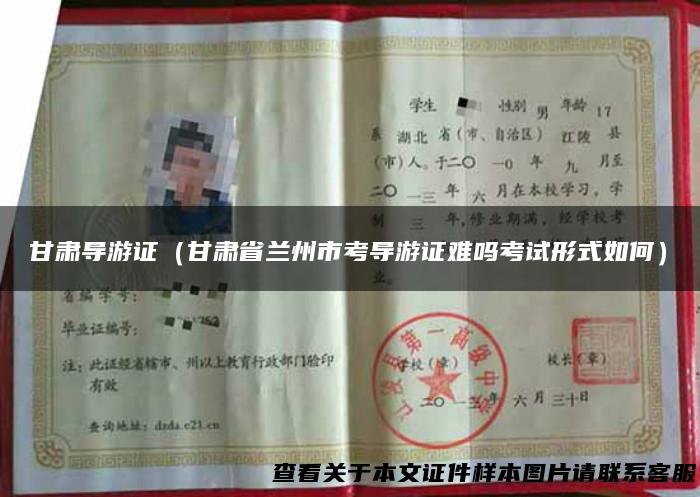 学生 性别 男 年龄 17
系 湖北 省(市、自治区) 江陵 县
(市)人。于二〇一0年 九 月至
二〇一三 年 六 月在本校学习,学
制 三 年,修业期满,经学校考
甘肃导游证（甘肃省兰州市考导游证难吗考试形式如何）
业。
省编学号：
毕业证编号：
注：此证经省辖市、州以上教育行政部门验印
有效
查询地址：dzda.e21.cn
学校(章) 校长(章)
江陵县第一高级中学
二〇一三年 六 月 三十日
查看关于本文证件样本图片请联系客服